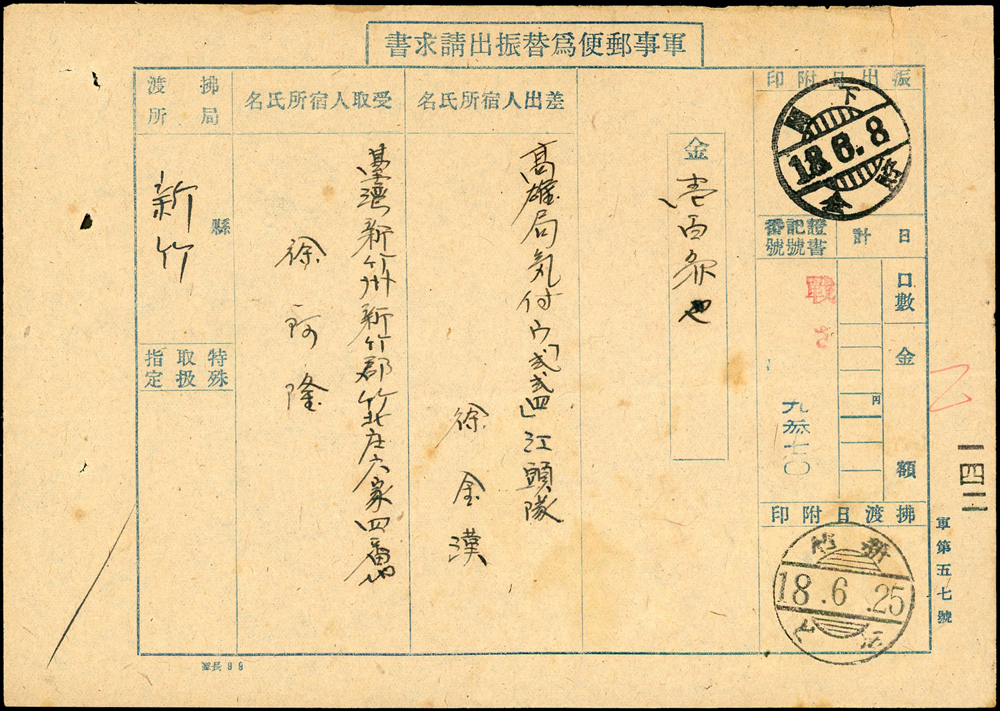 軍事郵便爲替振出請求書
振出日附印
下關
18.6.8
日計
證書記號番號
口數
金額
円
戰
さ
九叁七〇
拂渡日附印
新竹
18.6.25
金
壱百弥也
差出人宿所氏名
高雄局気付ウ弐弐四江頭隊
徐金漢
受取人宿所氏名
臺湾新竹州新竹郡竹北庄六家四番地
徐阿隆
拂渡局所
縣
新竹
特殊取扱指定
一四二
軍第五七號